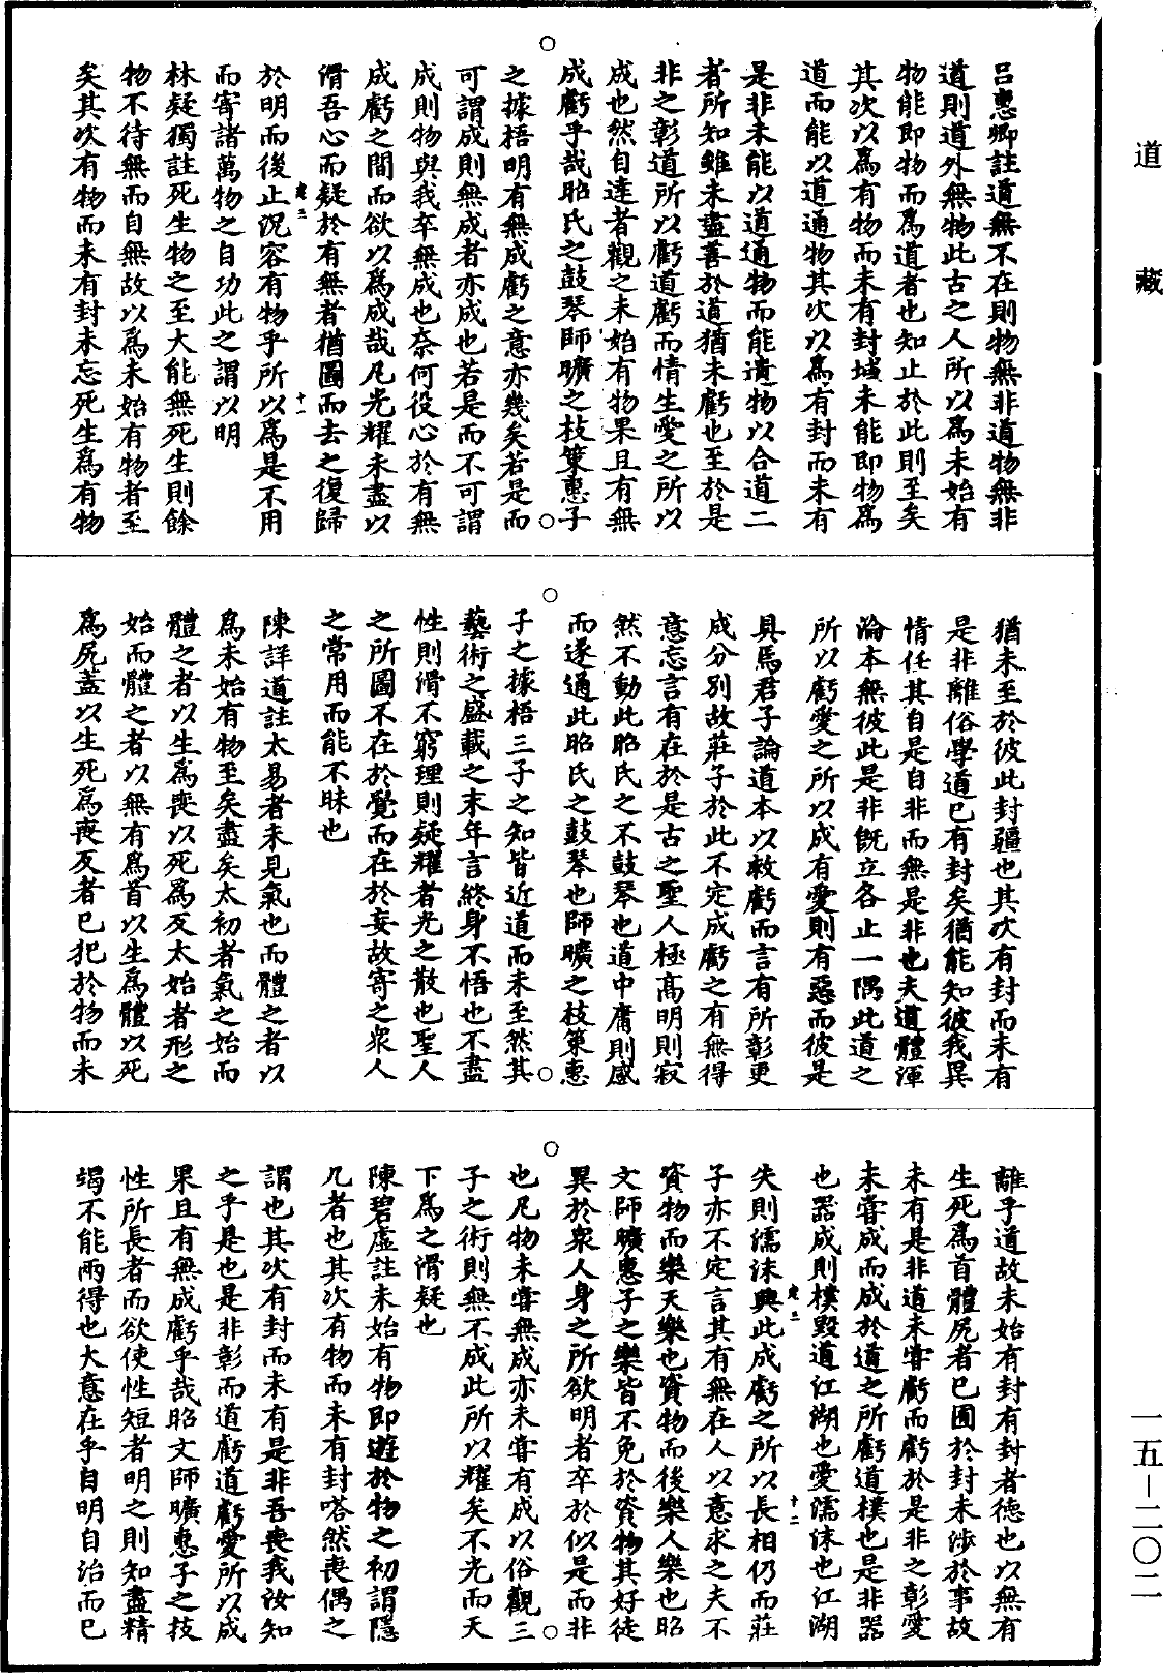 道藏
呂惠卿註道無不在則物無非道物無非
道則道外無物此古之人所以為未始有
物能即物而為道者也知止於此則至矣
其次以為有物而未有封域未能即物為
道而能以道通物其次以為有封而未有
是非未能以道通物而能遺物以合道二
者所知雖未盡善於道猶未虧也至於是
非之彰道所以虧道虧而情生愛之所以
成也然自達者觀之未始有物果且有無
成虧乎哉昭氏之鼓琴師曠之枝策惠子
之據梧明有無成虧之意亦幾矣若是而
可謂成則無成者亦成也若是而不可謂
成則物與我卒無成也奈何役心於有無
成虧之間而欲以為成哉凡光耀未盡以
滑吾心而疑於有無者猶圖而去之復歸
於明而後止況容有物乎所以為是不用
而寄諸萬物之自功此之謂以明
林疑獨註死生物之至大能無死生則餘
物不待無而自無故以為未始有物者至
矣其次有物而未有封未忘死生為有物
猶未至於彼此封疆也其次有封而未有
是非離俗學道已有封矣猶能知彼我異
情任其自是自非而無是非也夫道體渾
淪本無彼此是非既立各止一隅此道之
所以虧愛之所以成有愛則有惡而彼是
具焉君子論道本以救虧而言有所彰更
成分別故莊子於此不定成虧之有無得
意忘言有在於是古之聖人極高明則寂
然不動此昭氏之不鼓琴也道中庸則感
而遂通此昭氏之鼓琴也師曠之枝策惠
子之據梧三子之知皆近道而未至然其
藝術之盛載之末年言終身不悟也不盡
性則滑不窮理則疑耀者光之散也聖人
之所圖不在於覺而在於妄故寄之眾人
之常用而能不昧也
陳詳道註太易者未見氣也而體之者以
為未始有物至矣盡矣太初者氣之始而
體之者以生為喪以死為反太始者形之
始而體之者以無有為首以生為體以死
為尻蓋以生死為喪反者已犯於物而未
離乎道故未始有封有封者德也以無有
生死為首體尻者已囿於封未涉於事故
未有是非道未嘗虧而虧於是非之彰愛
未嘗成而成於道之所虧道樸也是非器
也器成則樸毀道江湖也愛濡沫也江湖
失則濡沫興此成虧之所以長相仍而莊
子亦不定言其有無在人以意求之夫不
資物而樂天樂也資物而後樂人樂也昭
文師曠惠子之樂皆不免於資物其好徒
異於眾人身之所欲明者卒於似是而非
也凡物未嘗無成亦未嘗有成以俗觀三
子之術則無不成此所以耀矣不光而天
下為之滑疑也
陳碧虛註未始有物即遊於物之初謂隱
几者也其次有物而未有封嗒然喪偶之
謂也其次有封而未有是非吾喪我汝知
之乎是也是非彰而道虧道虧愛所以成
果且有無成虧乎哉昭文師曠惠子之技
性所長者而欲使性短者明之則知盡精
竭不能兩得也大意在乎自明自治而已
一五—二〇二